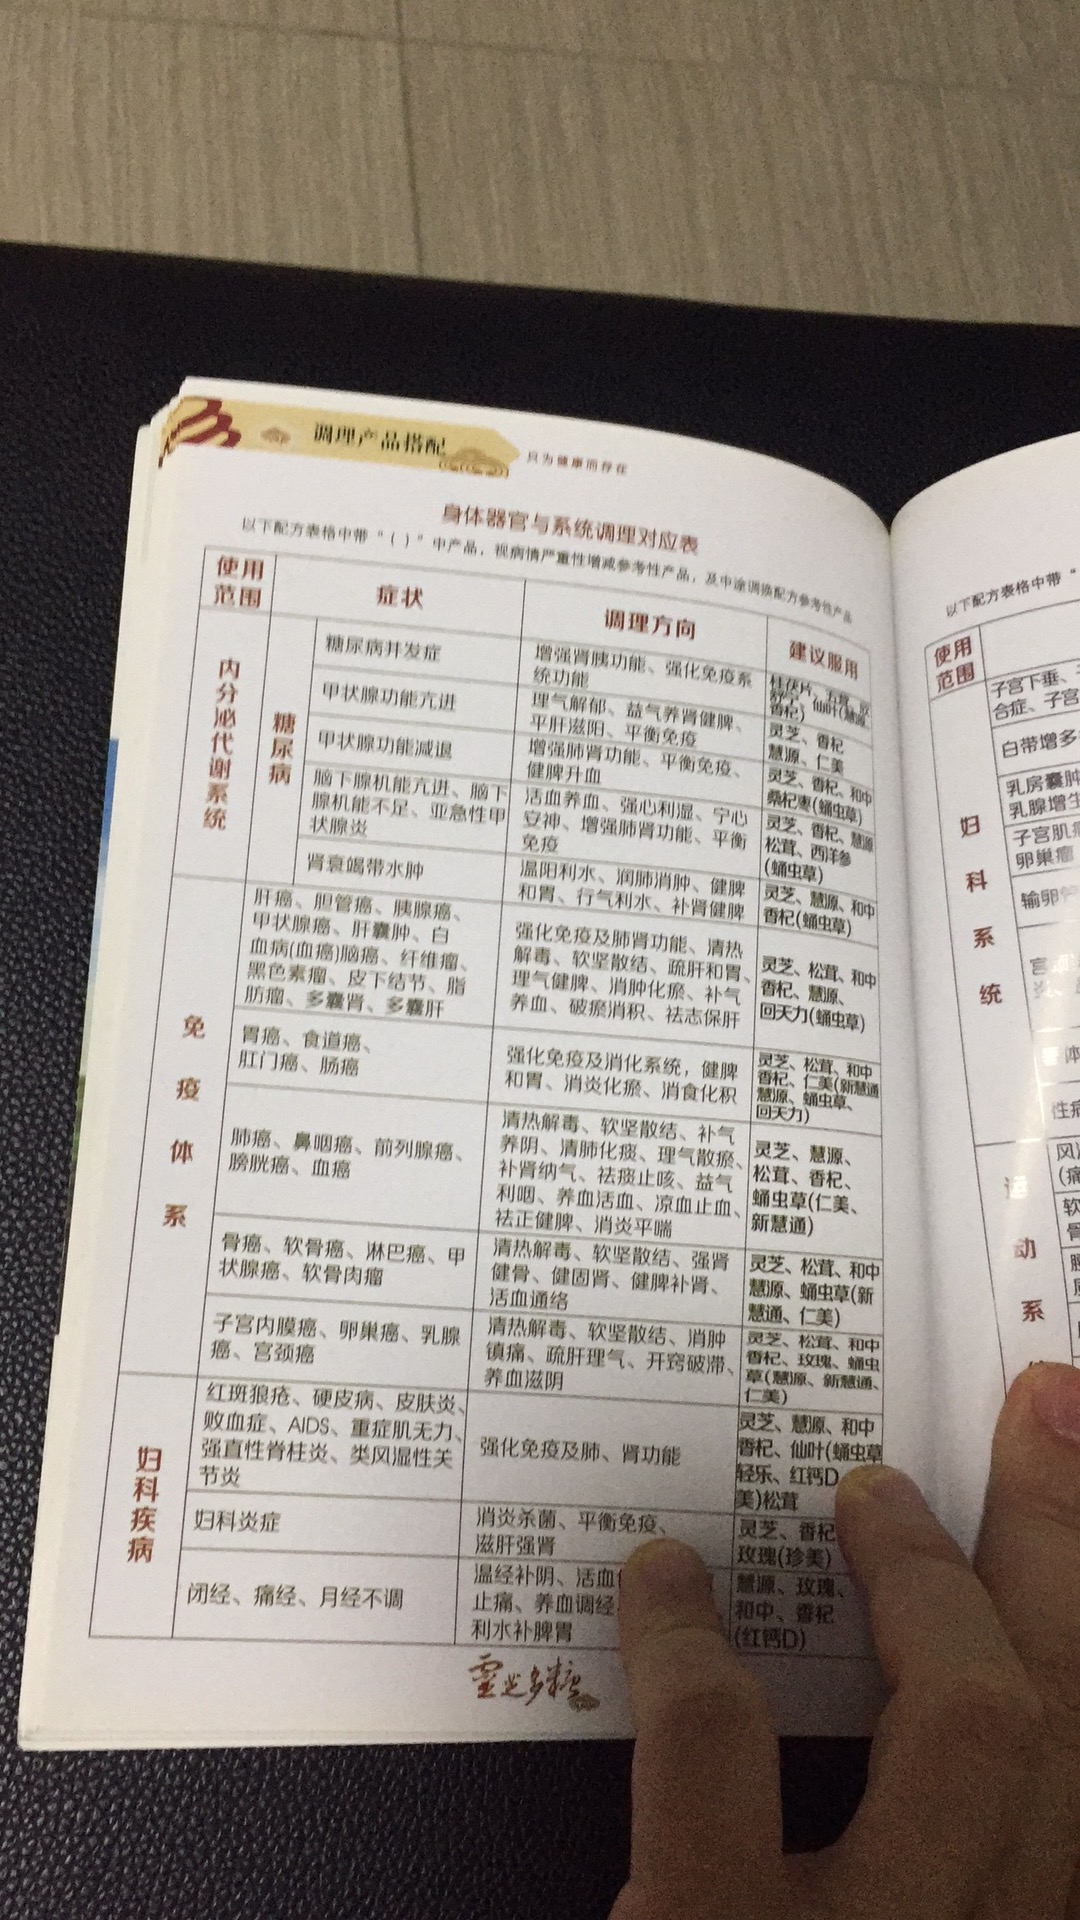 调理产品搭配
只为健康而存在
身体器官与系统调理对应表
以下配方表格中带“( )”中产品，视病情严重性增减参考性产品，及中途调换配方参考性产品
使用
范围
症状
调理方向
建议服用
内分泌代谢系统
糖尿病
糖尿病并发症
增强肾胰功能、强化免疫系
统功能
仙叶(慧源、
香杞)
甲状腺功能亢进
理气解郁、益气养肾健脾、
平肝滋阳、平衡免疫
灵芝、香杞
慧源、仁美
甲状腺功能减退
增强肺肾功能、平衡免疫、
健脾升血
灵芝、香杞、和中
桑杞枣(蛹虫草)
脑下腺机能亢进、脑下
腺机能不足、亚急性甲
状腺炎
活血养血、强心利湿、宁心
安神、增强肺肾功能、平衡
免疫
灵芝、香杞、慧源
松茸、西洋参
(蛹虫草)
肾衰竭带水肿
温阳利水、润肺消肿、健脾
和胃、行气利水、补肾健脾
灵芝、慧源、和中
香杞(蛹虫草)
免疫体系
肝癌、胆管癌、胰腺癌、
甲状腺癌、肝囊肿、白
血病(血癌)脑癌、纤维瘤、
黑色素瘤、皮下结节、脂
肪瘤、多囊肾、多囊肝
强化免疫及肺肾功能、清热
解毒、软坚散结、疏肝和胃、
理气健脾、消肿化瘀、补气
养血、破瘀消积、祛志保肝
灵芝、松茸、和中
香杞、慧源、
回天力(蛹虫草)
胃癌、食道癌、
肛门癌、肠癌
强化免疫及消化系统，健脾
和胃、消炎化瘀、消食化积
灵芝、松茸、和中
香杞、仁美(新慧通
慧源、蛹虫草、
回天力)
肺癌、鼻咽癌、前列腺癌、
膀胱癌、血癌
清热解毒、软坚散结、补气
养阴、清肺化痰、理气散瘀、
补肾纳气、祛痰止咳、益气
利咽、养血活血、凉血止血、
祛正健脾、消炎平喘
灵芝、慧源、
松茸、香杞、
蛹虫草(仁美、
新慧通)
骨癌、软骨癌、淋巴癌、甲
状腺癌、软骨肉瘤
清热解毒、软坚散结、强肾
健骨、健固肾、健脾补肾、
活血通络
灵芝、松茸、和中
慧源、蛹虫草(新
慧通、仁美)
子宫内膜癌、卵巢癌、乳腺
癌、宫颈癌
清热解毒、软坚散结、消肿
镇痛、疏肝理气、开窍破滞、
养血滋阴
灵芝、松茸、和中
香杞、玫瑰、蛹虫
草(慧源、新慧通、
仁美)
妇科疾病
红斑狼疮、硬皮病、皮肤炎、
败血症、AIDS、重症肌无力、
强直性脊柱炎、类风湿性关
节炎
强化免疫及肺、肾功能
灵芝、慧源、和中
香杞、仙叶(蛹虫草
轻乐、红钙D
美)松茸
妇科炎症
消炎杀菌、平衡免疫、
滋肝强肾
灵芝、香杞
玫瑰(珍美)
闭经、痛经、月经不调
温经补阴、活血
止痛、养血调经
利水补脾胃
慧源、玫瑰、
和中、香杞
(红钙D)
灵芝多糖
以下配方表格中带“
使用
范围
妇科系统
子宫下垂、
合症、子宫
白带增多
乳房囊肿
乳腺增生
子宫肌
卵巢瘤
输卵管
性病
动系